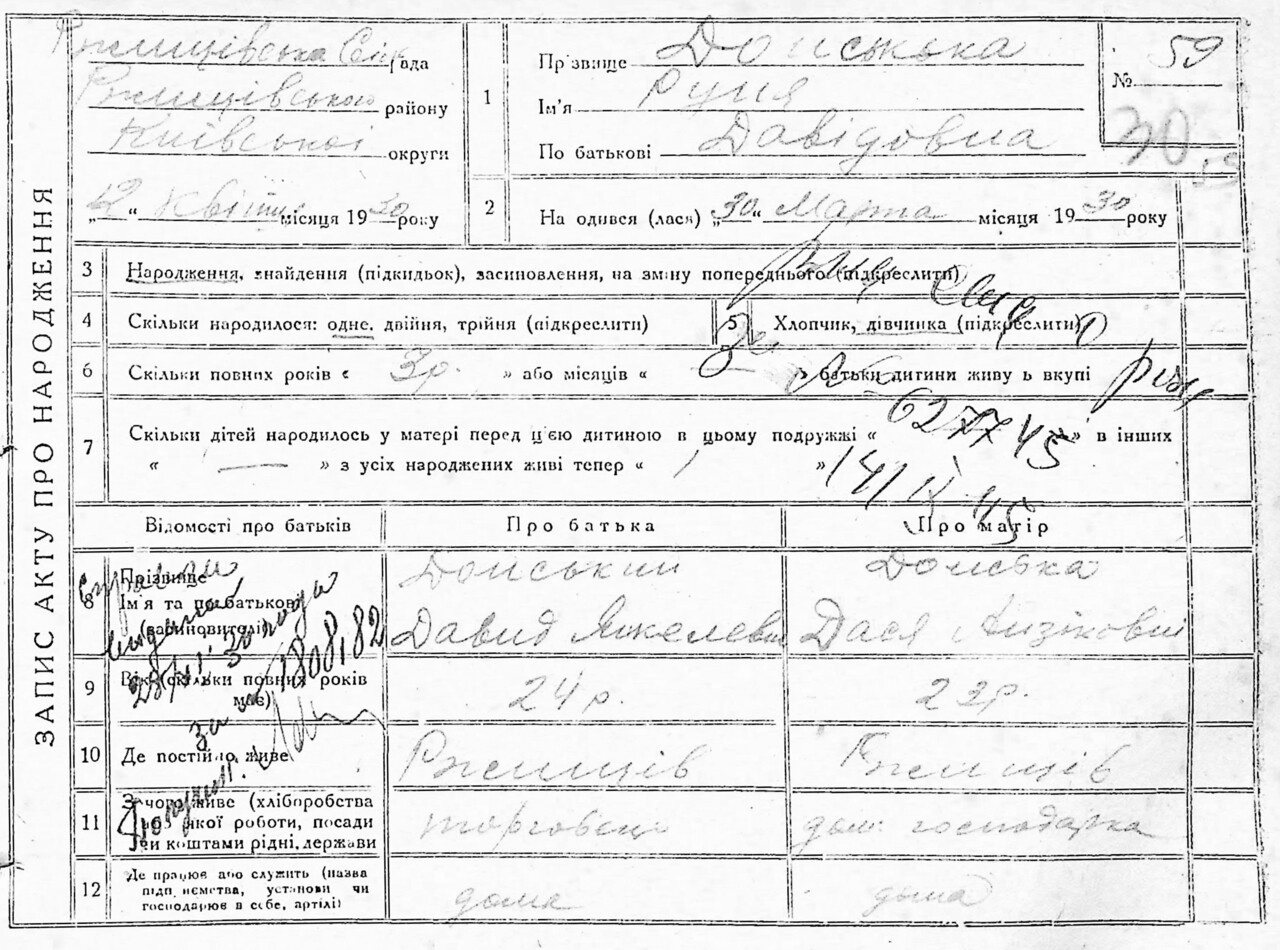 ЗАПИС АКТУ ПРО НАРОДЖЕННЯ
Ржищівська Сіль рада
Ржищівського району
Київської округи
„2“ Квітня місяця 1930 року
1
Пр'звище Донська
Ім'я Руня
По батькові Давідовна
№ 59
30
59
2
На одився (лася) „30“ Марта місяця 1930 року
3 Народження, знайдення (підкидьок), засиновлення, на зміну попереднього (підкреслити)
4 Скільки народилося: одне, двійня, трійня (підкреслити)
5 Хлопчик, дівчинка (підкреслити)
6 Скільки повних років « 3р. » або місяців « — » батьки дитини живу ь вкупі
7 Скільки дітей народилось у матері перед ц'єю дитиною в цьому подружжі « » в інших
« — » з усіх народжених живі тепер « 1 »
627745
141 IX 45
Відомості про батьків Про батька Про матір
8 Прізвище Донський Донська
Ім'я та по батькові Давид Янкелевич Дася Айзіковна
(засиновителі)
9 Вік (скільки повних років має) 24 р. 23р.
28/VI 30 года
1808,82
10 Де постійно живе Ржищів Ржищів
11 З чого живе (хліборобства торговець дом. господарка
якої роботи, посади
чи коштами рідні, держави
12 Де працює або служить (назва дома дома
підп иємства, установи чи
господарює в себе, артілі)